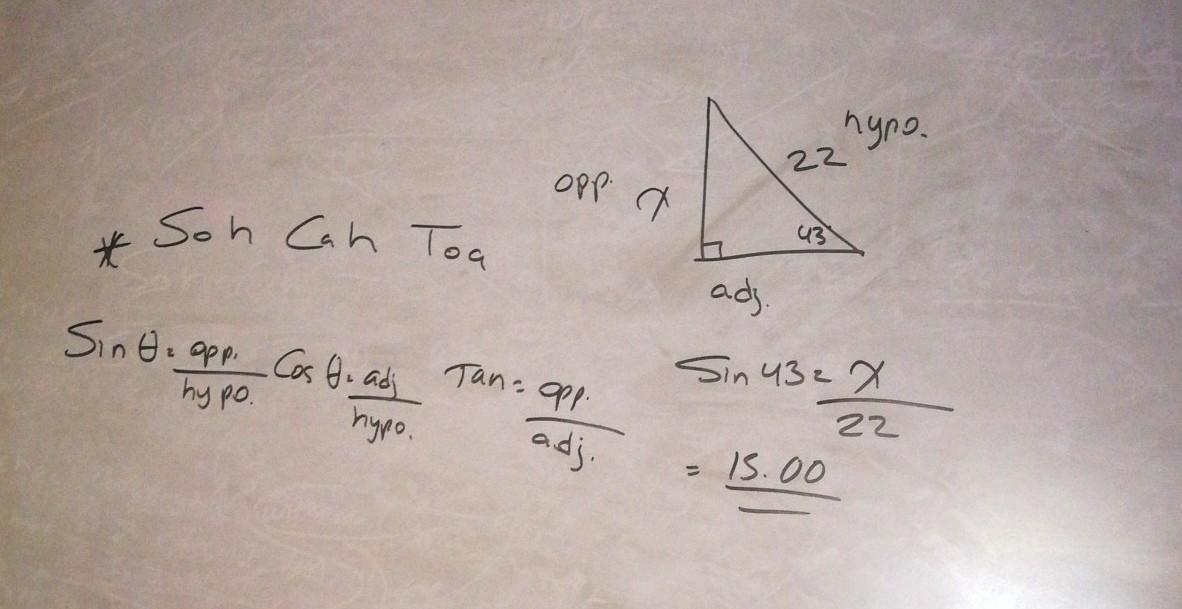 hypo.
22
opp. x
43
adj.
* Soh Cah Toa
Sin θ = opp. / hypo. Cos θ = adj / hypo. Tan = opp. / adj.
Sin 43 = x / 22
= 15.00